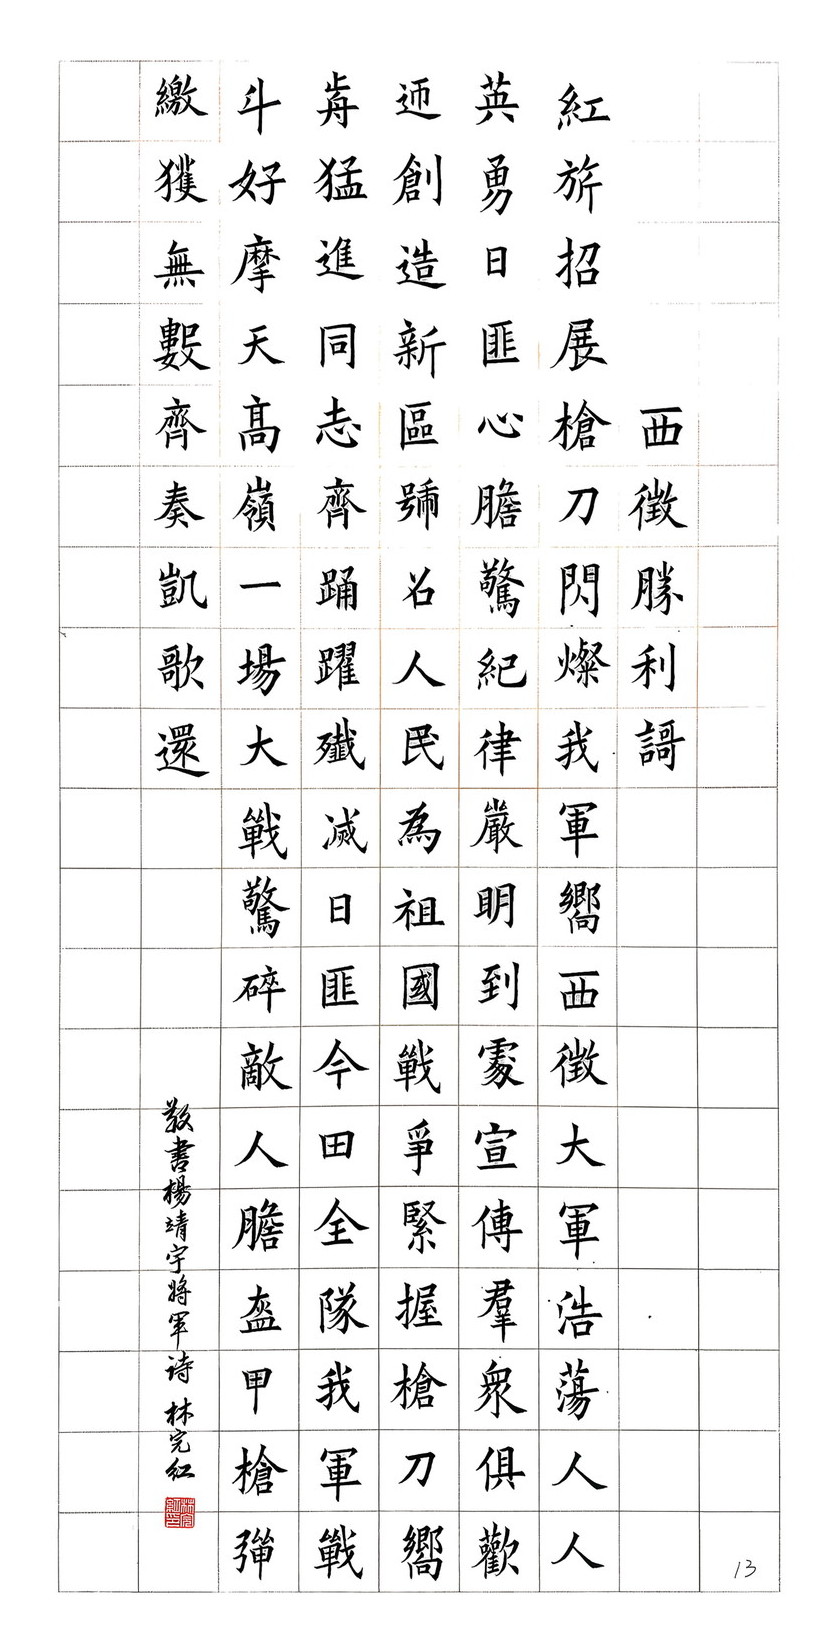 西徵勝利謌
紅旂招展槍刀閃燦我軍嚮西徵大軍浩蕩人人
英勇日匪心膽驚紀律嚴明到處宣傳羣衆俱歡
迊創造新區號召人民為祖國戰爭緊握槍刀嚮
歬猛進同志齊踊躍殲滅日匪今田全隊我軍戰
斗好摩天高嶺一場大戰驚碎敵人膽盔甲槍彈
繳獲無數齊奏凱歌還
敬書楊靖宇將軍诗 林完红
13